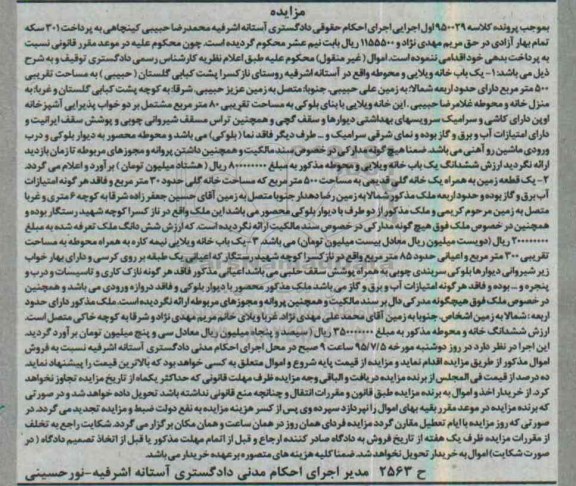 مزایده
بموجب پرونده کلاسه 950029 اول اجرایی اجرای احکام حقوقی دادگستری آستانه اشرفیه محمدرضا حبیبی کینچاهی به پرداخت 301 سکه
تمام بهار آزادی در حق مریم مهدی نژاد و 1155500 ریال بابت نیم عشر محکوم گردیده است. چون محکوم علیه در موعد مقرر قانونی نسبت
به پرداخت بدهی خود اقدامی ننموده است. اموال (غیر منقول) محکوم علیه طبق اعلام نظریه کارشناس رسمی دادگستری توقیف و به شرح
ذیل می باشد: 1- یک باب خانه ویلایی و محوطه واقع در آستانه اشرفیه روستای نازکسرا پشت کبابی گلستان (حبیبی) به مساحت تقریبی
500 متر مربع دارای حدود اربعه شمالا: به زمین علی حبیبی. جنوبا: متصل به زمین عزیز حبیبی. شرقا: به کوچه پشت کبابی گلستان و غربا: به
منزل خانه و محوطه غلامرضا حبیبی. این خانه ویلایی با بنای بلوکی به مساحت تقریبی 80 متر مربع مشتمل بر دو خواب پذیرایی آشپزخانه
اوپن دارای کاشی و سرامیک سرویسهای بهداشتی دیوارها و سقف گچی و همچنین تراس مسقف شیروانی چوبی و پوشش سقف ایرانیت و
دارای امتیازات آب و برق و گاز بوده و نمای شرقی سرامیک و .. طرف دیگر فاقد نما (بلوکی) می باشد و محوطه محصور به دیوار بلوکی و درب
ورودی ماشین رو آهنی می باشد. ضمنا هیچ گونه مدارکی در خصوص سند مالکیت و همچنین داشتن پروانه و مجوزهای مربوطه تا زمان بازدید
ارائه نگردید ارزش ششدانگ یک باب خانه ویلایی و محوطه مذکور به مبلغ 800000000 ریال (هشتاد میلیون تومان) برآورد و اعلام می گردد.
2- یک قطعه زمین به همراه یک خانه گلی قدیمی به مساحت 500 متر مربع که مساحت خانه گلی حدود 30 متر مربع و فاقد هر گونه امتیازات
آب برق و گاز بوده و حدود اربعه ملک مذکور شمالا به زمین رضا دهدار جنوبا متصل به زمین آقای حسین جعفر زاده شرقا به کوچه 6 متری و غربا
متصل به زمین مرحوم کریمی و ملک مذکور از دو طرف با دیوار بلوکی محصور می باشد این ملک واقع در نازکسرا کوچه شهید رستگار بوده و
همچنین در خصوص ملک فوق هیچ گونه مدارکی در خصوص سند مالکیت ارائه نگردیده است. که ارزش شش دانگ ملک تعرفه شده به مبلغ
ریال (دویست میلیون ریال معادل بیست میلیون تومان) می باشد 3- یک باب خانه ویلایی نیمه کاره به همراه محوطه به مساحت
تقریبی 300 متر مربع و اعیانی حدود 85 متر مربع واقع در نازکسرا کوچه شهید رستگار که اعیانی یک طبقه بر روی کرسی و دارای بهار خواب
زیر شیروانی دیوارها بلوکی سربندی چوبی به همراه پوشش سقف حلبی می باشد اعیانی مذکور فاقد هر گونه نازک کاری و تاسیسات و درب و
پنجره و ... بوده و فاقد هر گونه امتیازات آب و برق و گاز می باشد ملک مذکور محصور با دیوار بلوکی و فاقد دروازه ورودی می باشد و همچنین
در خصوص ملک فوق هیچگونه مدرکی دال بر سند مالکیت و همچنین پروانه و مجوزهای مربوطه ارائه نگردیده است. ملک مذکور دارای حدود
اربعه: شمالا به زمین اشخاص. جنوبا به زمین آقای محمد علی مهدی نژاد. غربا ویلای خانم مریم مهدی نژاد و شرقا به کوچه خاکی متصل است.
ارزش ششدانگ خانه و محوطه مذکور به مبلغ 350000000 ریال (سیصد و پنجاه میلیون ریال معادل سی و پنج میلیون تومان برآورد گردید.
این اجرا در نظر دارد در روز دوشنبه مورخه 95/7/5 ساعت 9 صبح در محل اجرای احکام مدنی دادگستری آستانه اشرفیه نسبت به فروش
اموال مذکور از طریق مزایده اقدام نماید و مزایده از قیمت پایه شروع و اموال متعلق به کسی خواهد بود که بالاترین قیمت را پیشنهاد نماید.
ده درصد از قیمت فی المجلس از برنده مزایده دریافت و الباقی وجه مزایده ظرف مهلت قانونی که حداکثر یکماه از تاریخ مزایده تجاوز نخواهد
کرد. از خریدار اخذ و اموال به برنده مزایده طبق قانون و مقررات انتقال و چنانچه منع قانونی نداشته باشد تحویل داده خواهد شد و در صورتی
که برنده مزایده در موعد مقرر بقیه بهای اموال را نپردازد سپرده وی پس از کسر هزینه مزایده به نفع دولت ضبط و مزایده تجدید می گردد. در
صورتی که روز مزایده با ایام تعطیل مقارن گردد مزایده فردای همان روز در همان ساعت و همان مکان برگزار می گردد. شکایت راجع به تخلف
از مقررات مزایده ظرف یک هفته از تاریخ فروش به دادگاه صادر کننده ارجاع و قبل از اتمام مهلت مذکور یا قبل از اتخاذ تصمیم دادگاه (در
صورت شکایت) اموال به خریدار تحویل نخواهد شد. ضمنا کلیه هزینه های متصوره بر عهده خریدار می باشد.
ح 2563 مدیر اجرای احکام مدنی دادگستری آستانه اشرفیه- نور حسینی